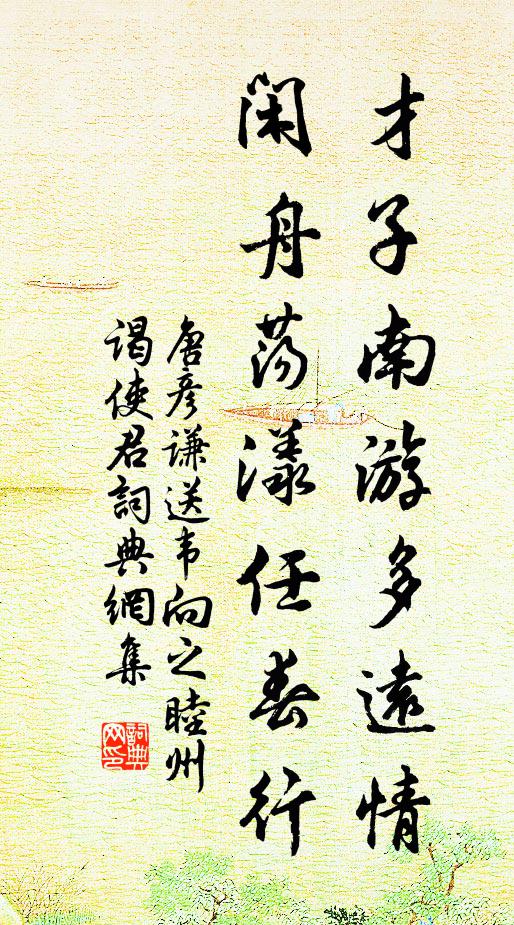 才子南游多遠情
闲舟荡漾任春行
唐彦谦送韦向之睦州
谒使君詞典網集
詞典网印